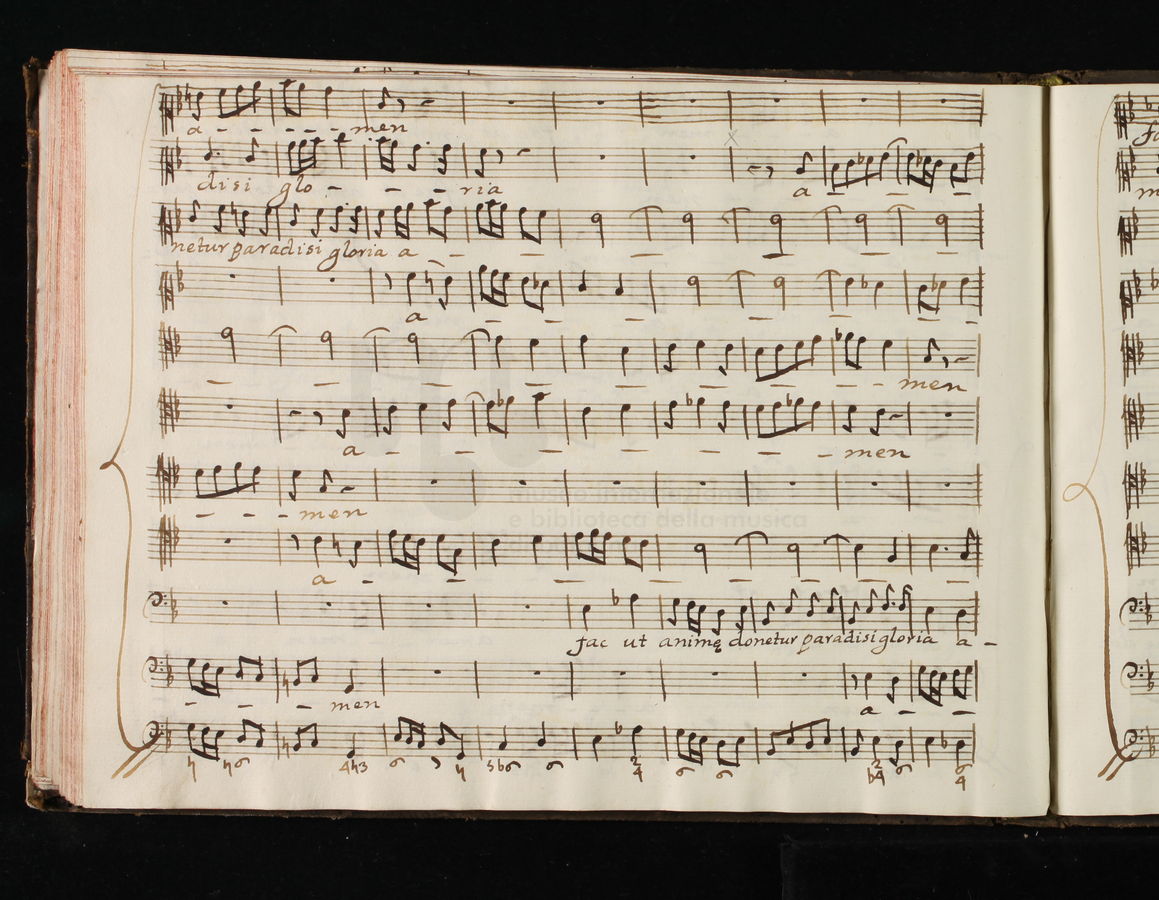 a - - - - - men
disi glo - - - ria a - - -
netur paradisi gloria a - - - - - -
a - - - - - - -
- - - - - - - - men
a - - - - - - - men
- - - men
a - - - - - - -
fac ut animę donetur paradisi gloria a -
- - - men a - -
musica
e biblioteca della musica
♮ ♮6 4♮3 6 ♮ 5♭6 6 6 6 6